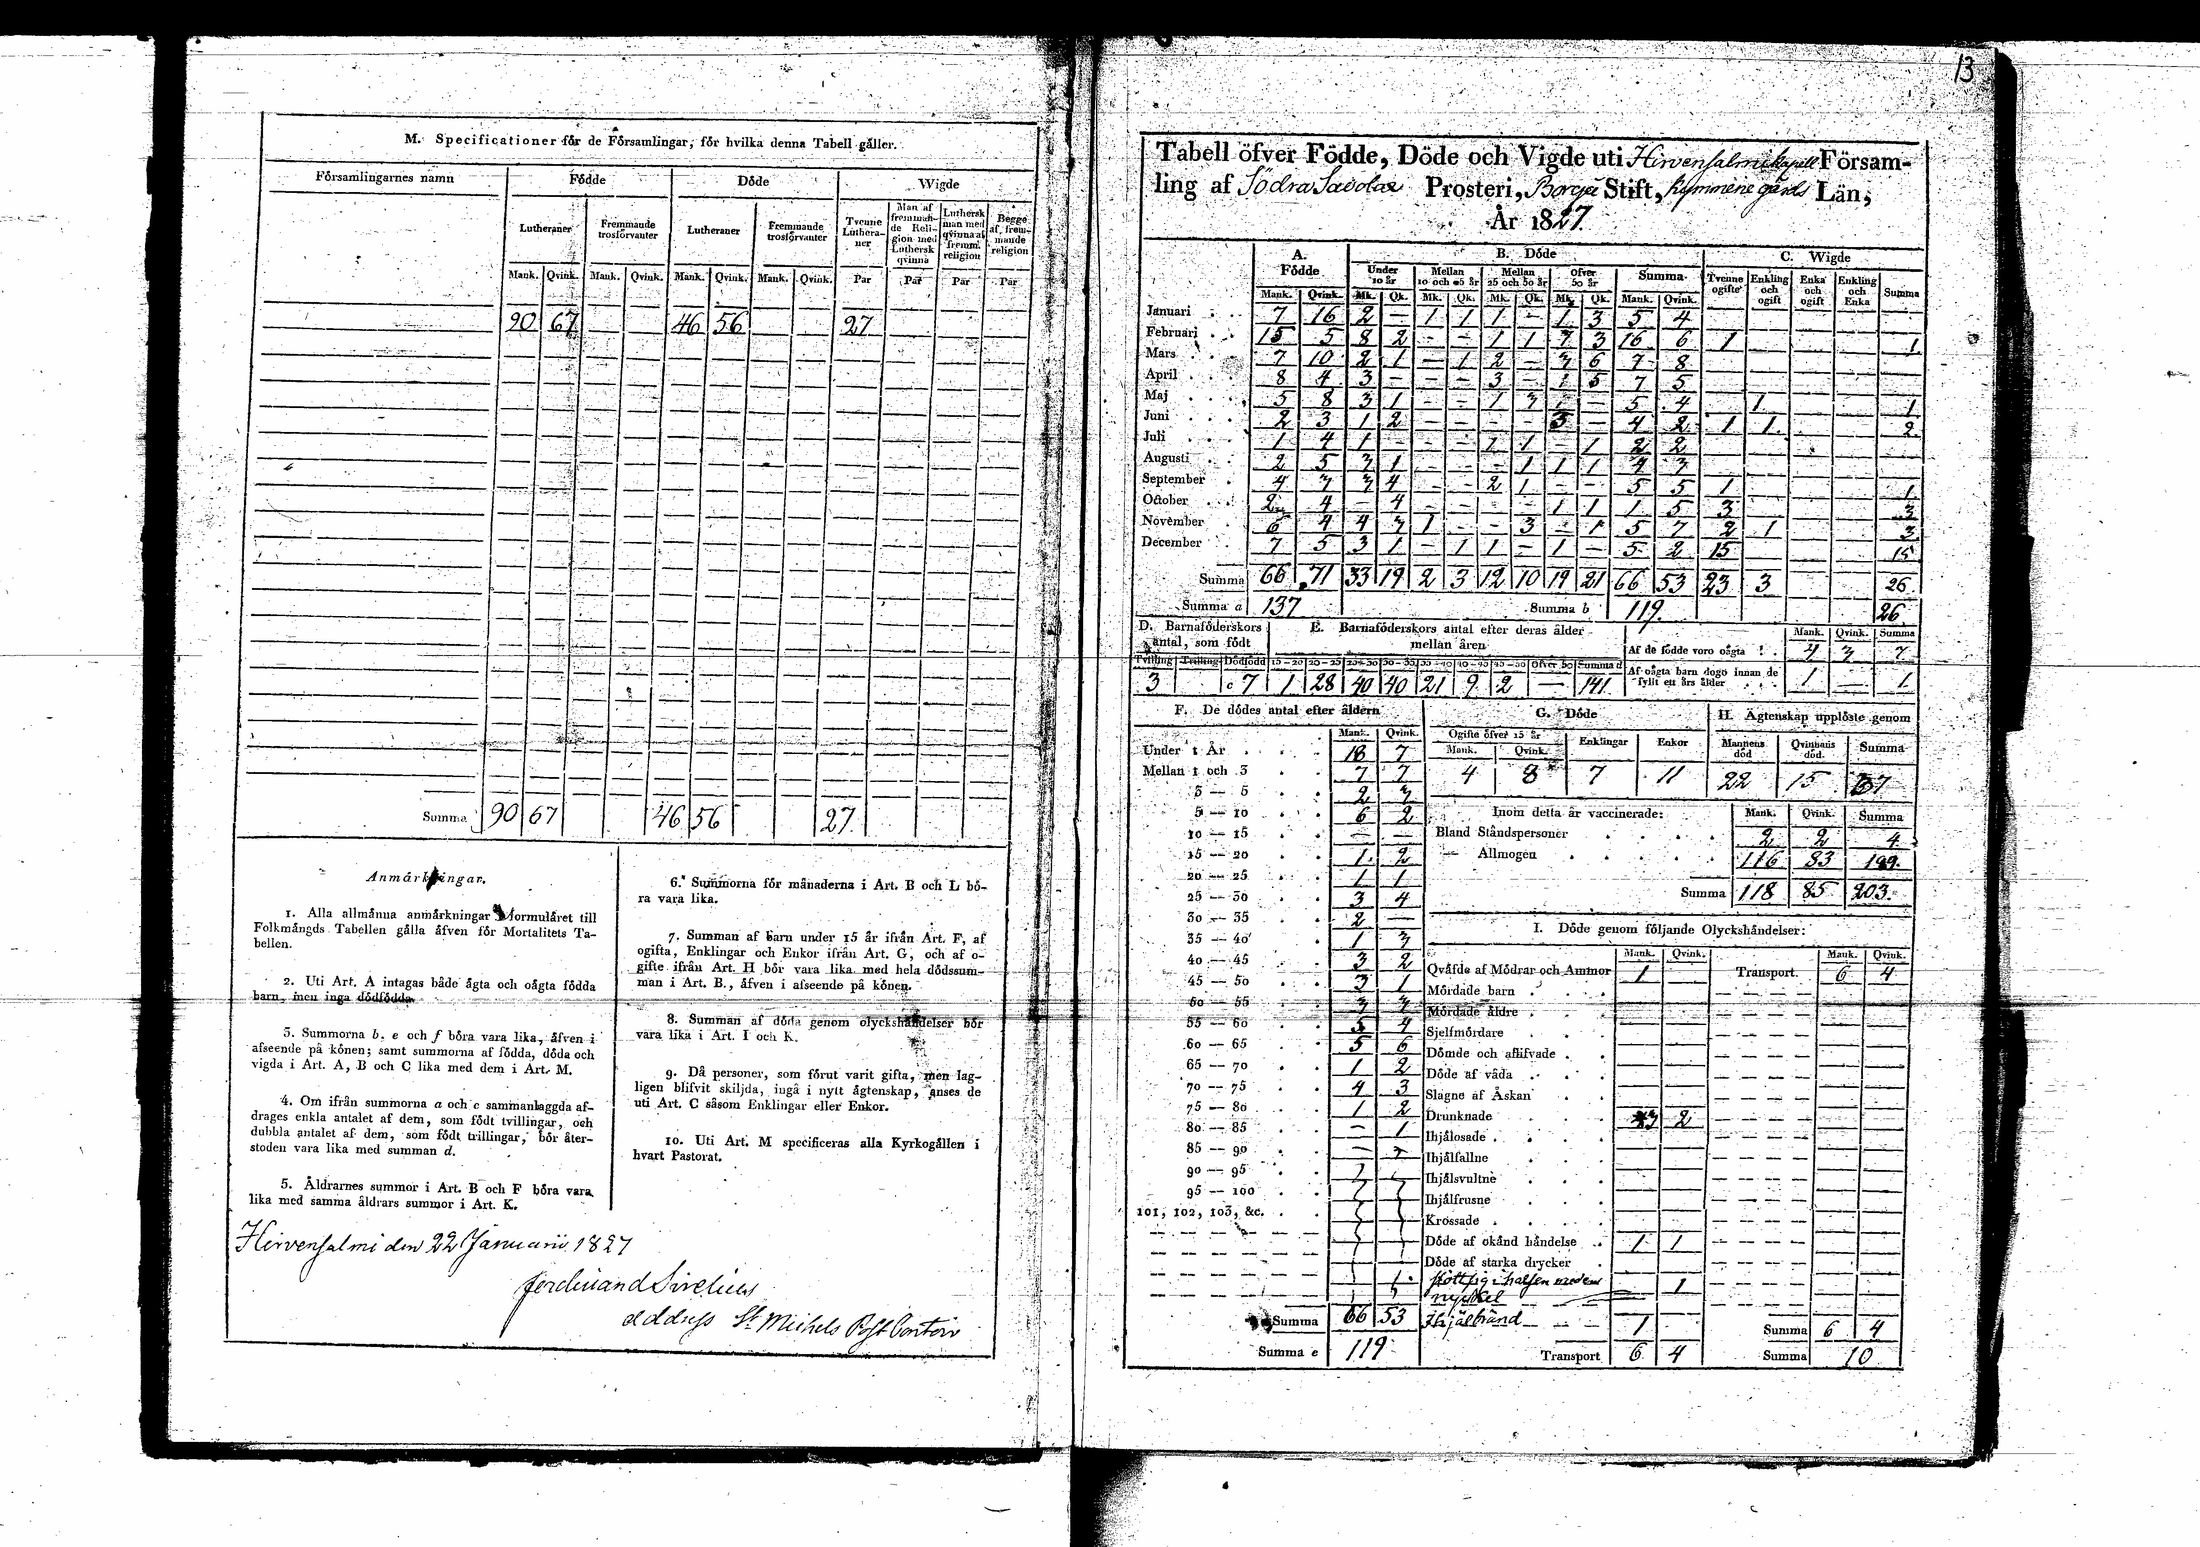 M. Specificationer för de Församlingar, för hvilka denna Tabell gäller.
Församlingarnes namn Födde Döde Wigde
Lutheraner Fremmande trosförvanter Lutheraner Fremmande trosförvanter Tvenne Lutheraner Man af fremmande Religion med Luthersk qvinna Luthersk man med qvinna af fremm. religion Begge af fremmande religion
Mank. Qvink. Mank. Qvink. Mank. Qvink. Mank. Qvink. Par Par Par Par
90 67 46 56 27
Summa 90 67 46 56 27
Anmärkningar.
1. Alla allmänna anmärkningar formuläret till
Folkmängds Tabellen gälla äfven för Mortalitets Ta-
bellen.
2. Uti Art. A intagas både ägta och oägta födda
barn, men inga dödfödda.
3. Summorna b, e och f böra vara lika, äfven i
afseende på könen; samt summorna af födda, döda och
vigda i Art. A, B och C lika med dem i Art. M.
4. Om ifrån summorna a och c sammanlaggda af-
drages enkla antalet af dem, som födt tvillingar, och
dubbla antalet af dem, som födt trillingar, bör åter-
stoden vara lika med summan d.
5. Åldrarnes summor i Art. B och F böra vara
lika med samma åldrars summor i Art. K.
6. Summorna för månaderna i Art. B och L bö-
ra vara lika.
7. Summan af barn under 15 år ifrån Art. F, af
ogifta, Enklingar och Enkor ifrån Art. G, och af o-
gifte ifrån Art. H bör vara lika med hela dödssum-
man i Art. B., äfven i afseende på könen.
8. Summan af döda genom olyckshändelser bör
vara lika i Art. I och K.
9. Då personer, som förut varit gifta, men lag-
ligen blifvit skiljda, ingå i nytt ägtenskap, anses de
uti Art. C såsom Enklingar eller Enkor.
10. Uti Art. M specificeras alla Kyrkogällen i
hvart Pastorat.
Hirvensalmi den 22 Januarii 1827
Ferdinand Sirelius
address St Michels Post Contoir
13
Tabell öfver Födde, Döde och Vigde uti Hirvensalmi Kapell Försam-
ling af Södra Savolax Prosteri, Borgå Stift, Kymmene gårds Län,
År 1827.
A. Födde B. Döde C. Wigde
Under 10 år Mellan 10 och 25 år Mellan 25 och 50 år Öfver 50 år Summa Tvenne ogifte Enkling och ogift Enka och ogift Enkling och Enka Summa
Mank. Qvink. Mk. Qk. Mk. Qk. Mk. Qk. Mk. Qk. Mank. Qvink.
Januari 7 16 2 — 1 1 1 — 1 3 5 4
Februari 15 5 8 2 — — 1 1 7 3 16 6 1 1
Mars 7 10 2 1 — 1 2 — 3 6 7 8
April 8 4 3 — — — 3 — 1 5 7 5
Maj 5 8 3 1 — — 1 3 — 5 4 1 1
Juni 2 3 1 2 — — — — 3 — 4 2 1 1 2
Juli 1 4 1 — — — 1 1 — 1 2 2
Augusti 2 5 3 1 — — — 1 1 1 4 3
September 4 3 3 4 — — 2 1 — — 5 5 1 1
October 2 4 — 4 — — — — 1 1 1 5 3 3
November 6 4 4 3 1 — — 3 — 1 5 7 2 1 3
December 7 5 3 1 — 1 1 — 1 — 5 2 15 15
Summa 66 71 33 19 2 3 12 10 19 21 66 53 23 3 26
Summa a 137 Summa b 119. 26.
D. Barnaföderskors antal, som födt E. Barnaföderskors antal efter deras ålder mellan åren
Tvilling Trilling Dödfödd 15—20 20—25 25—30 30—35 35—40 40—45 45—50 Öfver 50 Summa d
3 7 1 28 40 40 21 9 2 — 141
Mank. Qvink. Summa
Af de födde voro oägta 4 3 7
Af oägta barn dogo innan de fyllt ett års ålder 1 — 1
F. De dödes antal efter åldern
Mank. Qvink.
Under 1 År 18 7
Mellan 1 och 3 7 7
3 — 5 2 3
5 — 10 6 2
10 — 15 — —
15 — 20 1 2
20 — 25 1 1
25 — 30 3 4
30 — 35 2 —
35 — 40 1 3
40 — 45 3 2
45 — 50 3 1
50 — 55 3 3
55 — 60 5 4
60 — 65 5 6
65 — 70 1 2
70 — 75 4 3
75 — 80 1 2
80 — 85 — 1
85 — 90
90 — 95
95 — 100
101, 102, 103, &c.
Summa 66 53
Summa e 119
G. Döde
Ogifte öfver 15 år Enklingar Enkor
Mank. Qvink.
4 8 7 11
H. Ägtenskap upplöste genom
Mannens död Qvinnans död. Summa
22 15 37
Inom detta år vaccinerade: Mank. Qvink. Summa
Bland Ståndspersoner 2 2 4
— Allmogen 116 83 199.
Summa 118 85 203.
I. Döde genom följande Olyckshändelser:
Mank. Qvink. Mank. Qvink.
Qväfde af Mödrar och Ammor 1 Transport. 6 4
Mördade barn
Mördade äldre
Sjelfmördare
Dömde och aflifvade
Döde af våda
Slagne af Åskan
Drunknade 3 2
Ihjälosade
Ihjälfallne
Ihjälsvultne
Ihjälfrusne
Krossade
Döde af okänd händelse 1 1
Döde af starka drycker
stött sig i halsen med en 1
nyckel
Ihjälbränd 1 Summa 6 4
Transport 6 4 Summa 10